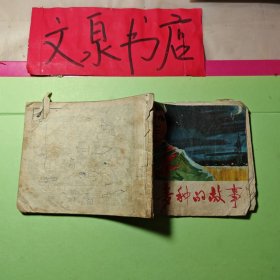 文泉书店
种的故事